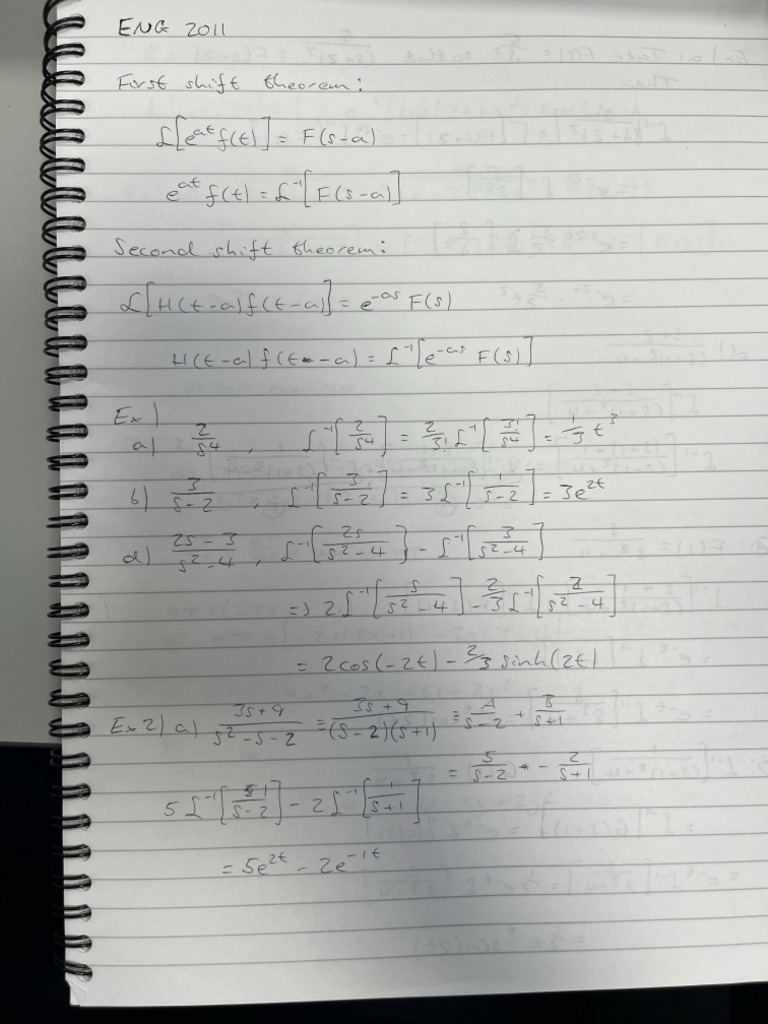 ENG 2011
First shift theorem:
ℒ[e^{at} f(t)] = F(s-a)
e^{at} f(t) = ℒ^{-1}[F(s-a)]
Second shift theorem:
ℒ[H(t-a) f(t-a)] = e^{-as} F(s)
H(t-a) f(t-a) = ℒ^{-1}[e^{-as} F(s)]
Ex1)
a) 2/s^4 , ℒ^{-1}[2/s^4] = 2/3! ℒ^{-1}[3!/s^4] = 1/3 t^3
b) 3/(s-2) , ℒ^{-1}[3/(s-2)] = 3ℒ^{-1}[1/(s-2)] = 3e^{2t}
d) (2s-3)/(s^2-4) , ℒ^{-1}[2s/(s^2-4)] - ℒ^{-1}[3/(s^2-4)]
=> 2ℒ^{-1}[s/(s^2-4)] - 2/3 ℒ^{-1}[2/(s^2-4)]
= 2cos(-2t) - 2/3 sinh(2t)
Ex2) a) (3s+9)/(s^2-s-2) = (3s+9)/((s-2)(s+1)) = A/(s-2) + B/(s+1)
= 5/(s-2) - 2/(s+1)
5ℒ^{-1}[1/(s-2)] - 2ℒ^{-1}[1/(s+1)]
= 5e^{2t} - 2e^{-1t}